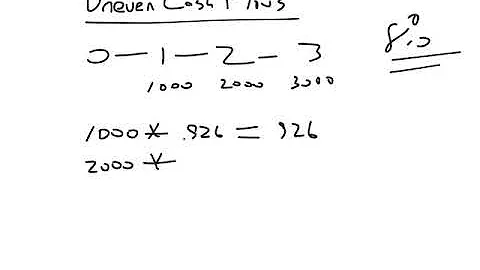 Uneven Cash Flows
0 — 1 — 2 — 3
8%
1000 2000 3000
1000 * .926 = 926
2000 *